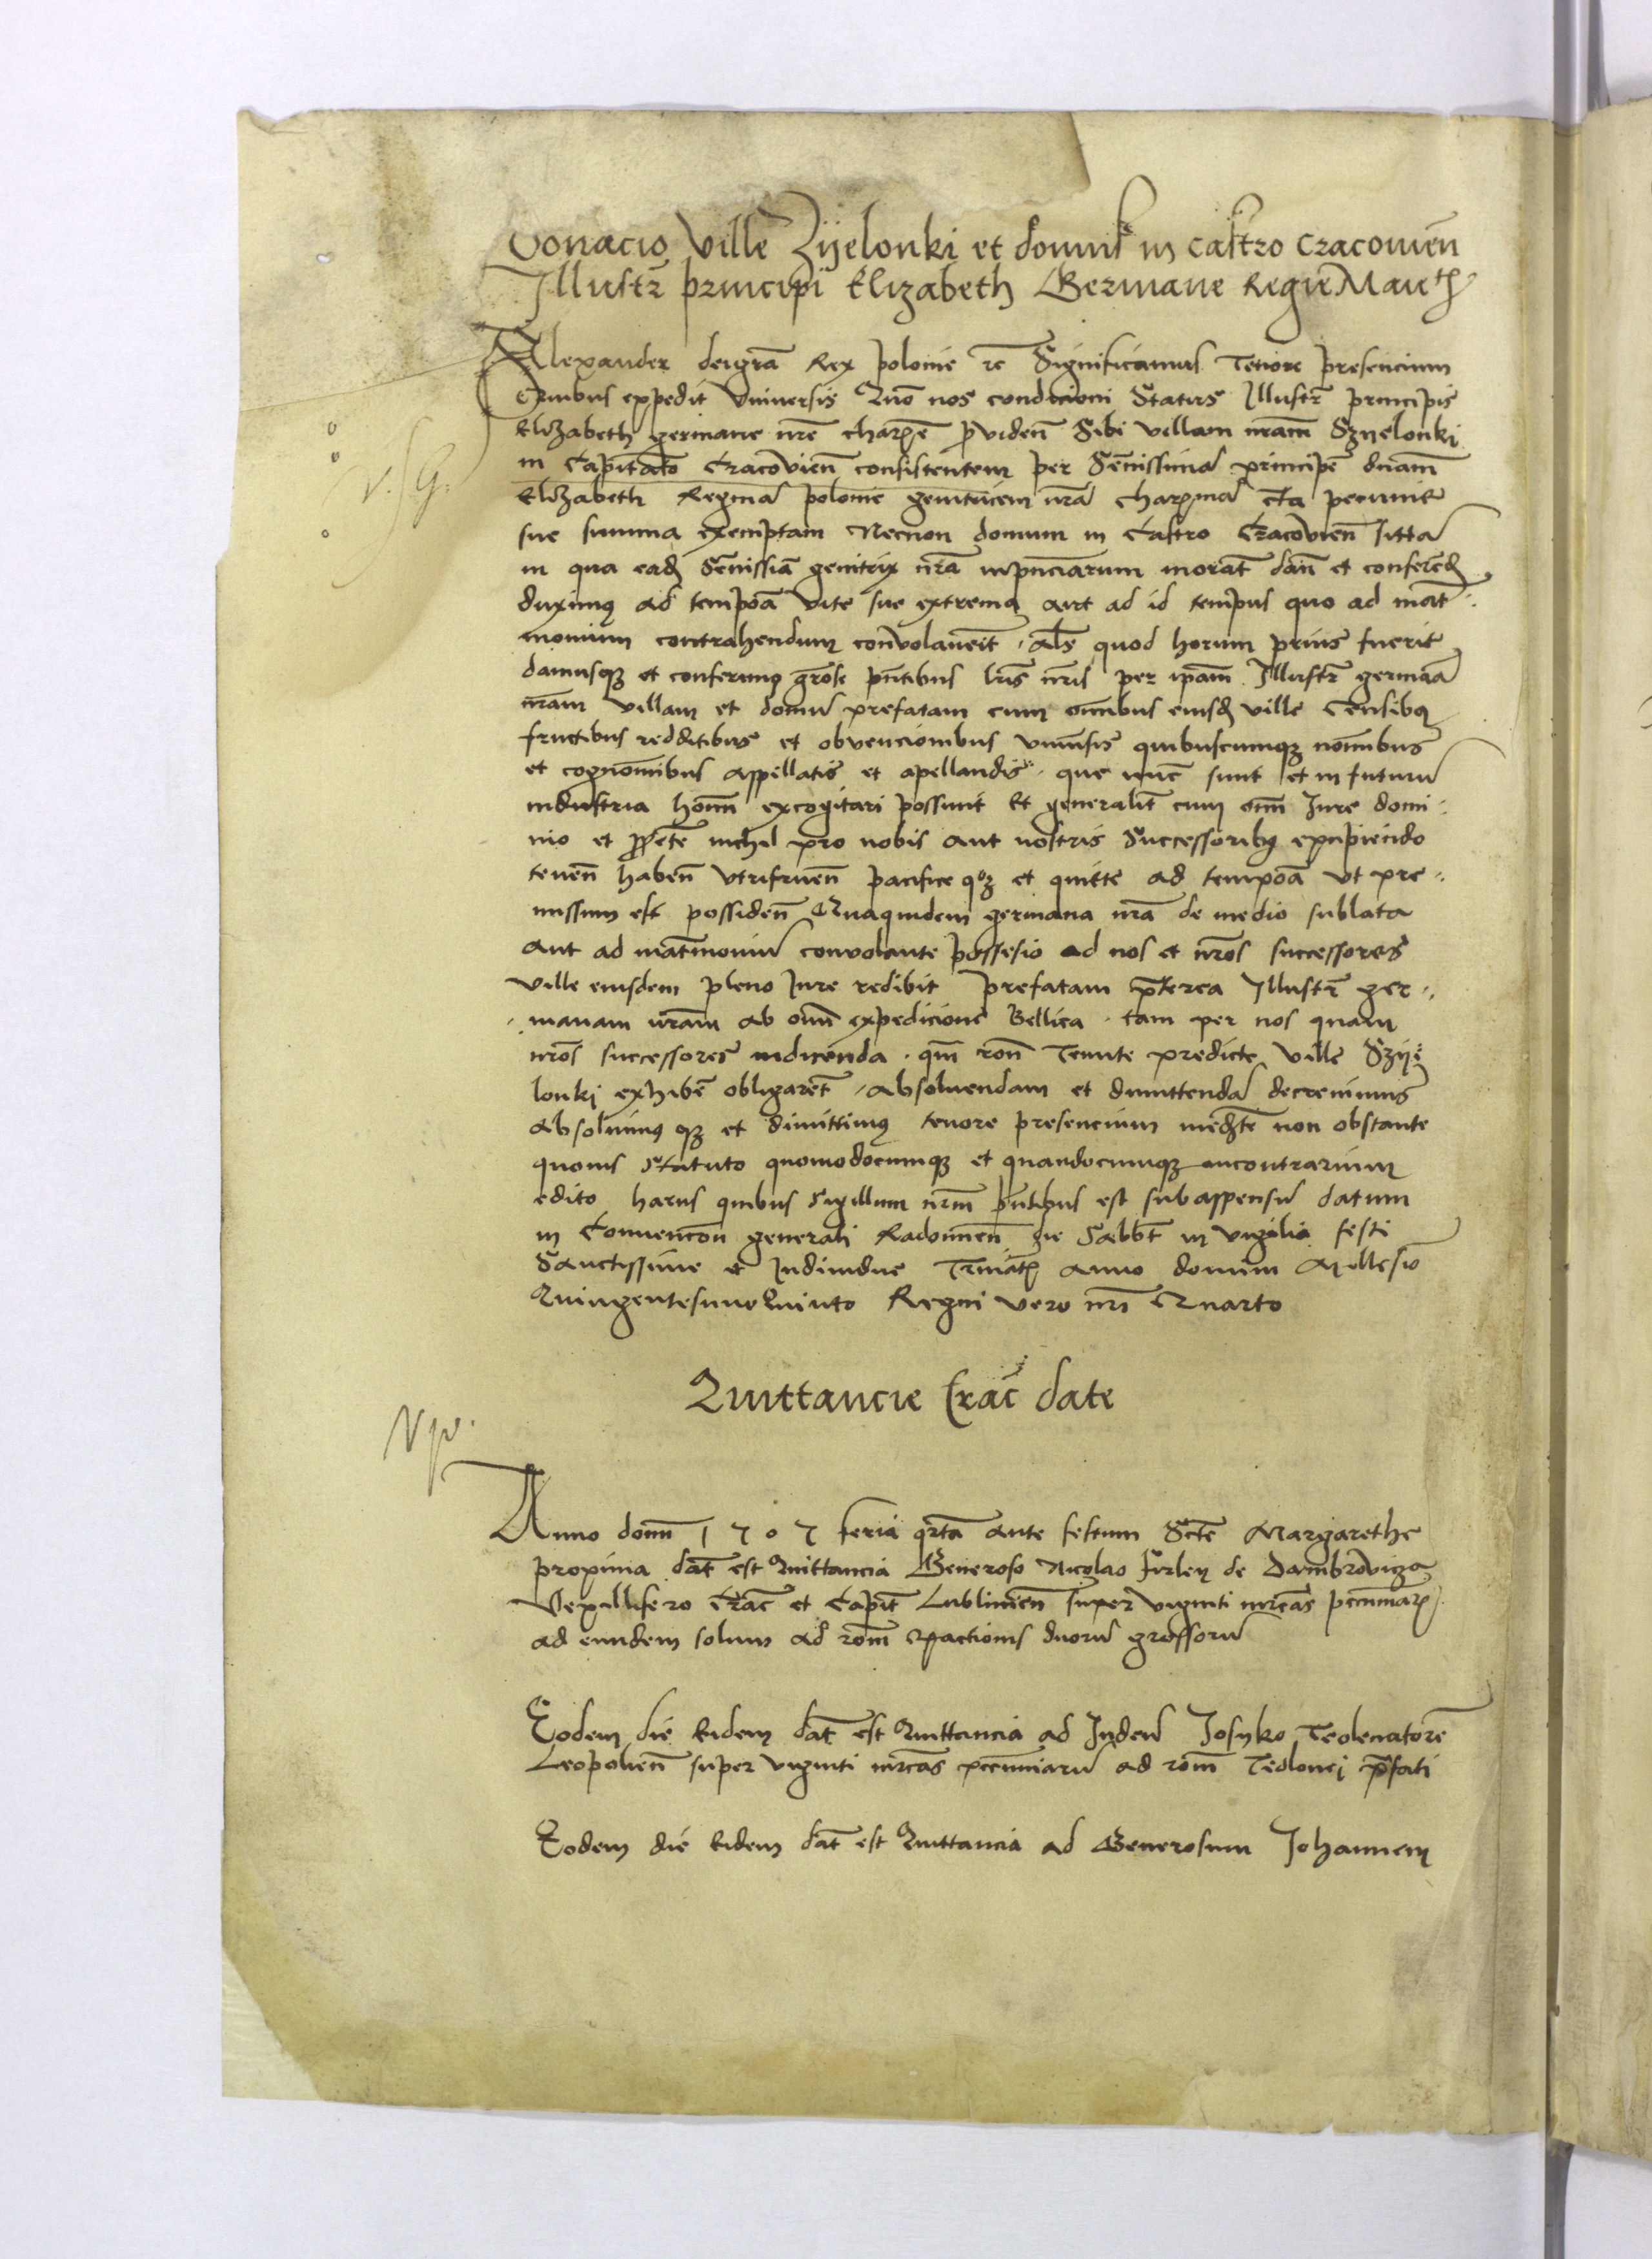 Donacio Ville Zyelonki et domus in castro cracovien
Illustri principi Elizabeth Germane Regie Maiestatis
Alexander dei gra Rex polonie rc Significamus Tenore presencium
Quibus expedit Universis Quo nos condicioni Status Illustr principis
Elizabeth germane nre chare providen Sibi villam nram Szyelonki
in Capitato Cracovien consistentem per Senissima principe dnam
Elizabeth Regina polonie genitricem nra charma cta pecunie
sue summa exemptam Necnon domum in Castro Cracovien sitta
in qua eade Senissia genitrix nra inpnciarum morat dan et conferend
duximus ad tempoa vite sue extrema aut ad id tempus quo ad mat
monium contrahendum convolaverit als quod horum prius fuerit
damusqz et conferimus grose pntibus lris nris per ipam Illustr germaa
nram villam et domu prefatam cum omnibus eiusd ville Censibus
fructibus redditibus et obvencionibus vnivsis quibuscumqz nominibus
et cognominibus appellatis et apellandis que nuc sunt et in futuru
industria homi excogitari possunt Et generalit cum omi Jure domi
nio et prpete nichil pro nobis aut nostris Successoribus excipiendo
tenen haben vtrifruen pacifice qoz et quitte ad tempoa vt pre
missum est possiden Quaquidem germana nra de medio sublata
aut ad matrimoniu convolante possesio ad nos et nros successores
ville eiusdem pleno Jure redibit prefatam preterea Illustr ger
manam nram ab omi expedicione Bellica tam per nos quam
nros successores indicenda qm ron Tenute predicte ville Szye
lonki exhibe obligaret absoluendam et dimittenda decrevimus
absoluimus qz et dimittimus tenore presencium mediante non obstante
quovis statuto quomodocumqz et quandocumqz incontrarium
edito harus quibus sigillum nrm pntibus est subappensu datum
in Convencon generali Radomien die Sabbt in vigilia festi
Sanctissime et Individue Trinitat anno domini Millesio
Quingentesimo Quinto Regni vero nri Quarto
Quittancie Crac date
Anno domi 1505 feria qrta ante festum Scte Margarethe
proxima dat est Quittancia Generoso Nicolao Firley de Dambrowiza
Vexillifero Crac et Capit Lublinien super viginti mrcas pecuniar
ad eundem solum ad rom exactionis duoru grossoru
Eodem die Eidem dat est Quittancia ad Judeu Josyko Teolenatore
Leopolien super viginti mrcas pecuniaru ad rom Teolonei prfati
Eodem die Eidem dat est Quittancia ad Generosum Johannem